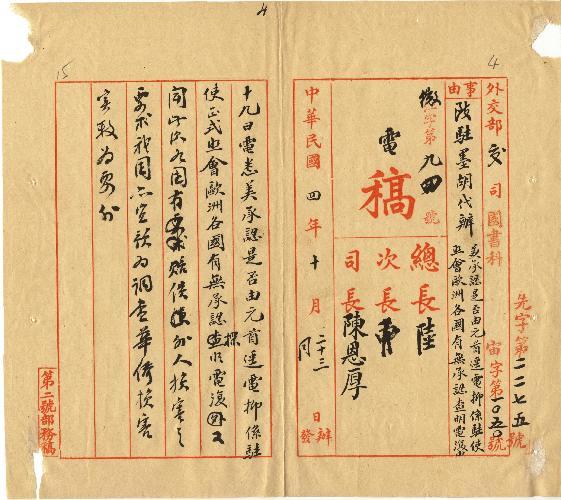 4
4
先字第二二七五號
外交部 交 司 圖書科 宙字第一〇五〇號
事由
改駐墨胡代辦
美承認是否由元首逕電抑係駐使
照會歐洲各國有無承認查明電復
微字第九四號
電
稿
總長 陸
次長 曹
司長 陳恩厚
中華民國 四年 十月 二十三 日 辦發
15
十九日電悉美承認是否由元首逕電抑係駐
使正式照會歐洲各國有無承認探查明電復又
聞此次各國有要求賠償外人損害之
要求我國亦宜預為調查華僑損害
實數為要外
第二號部務稿